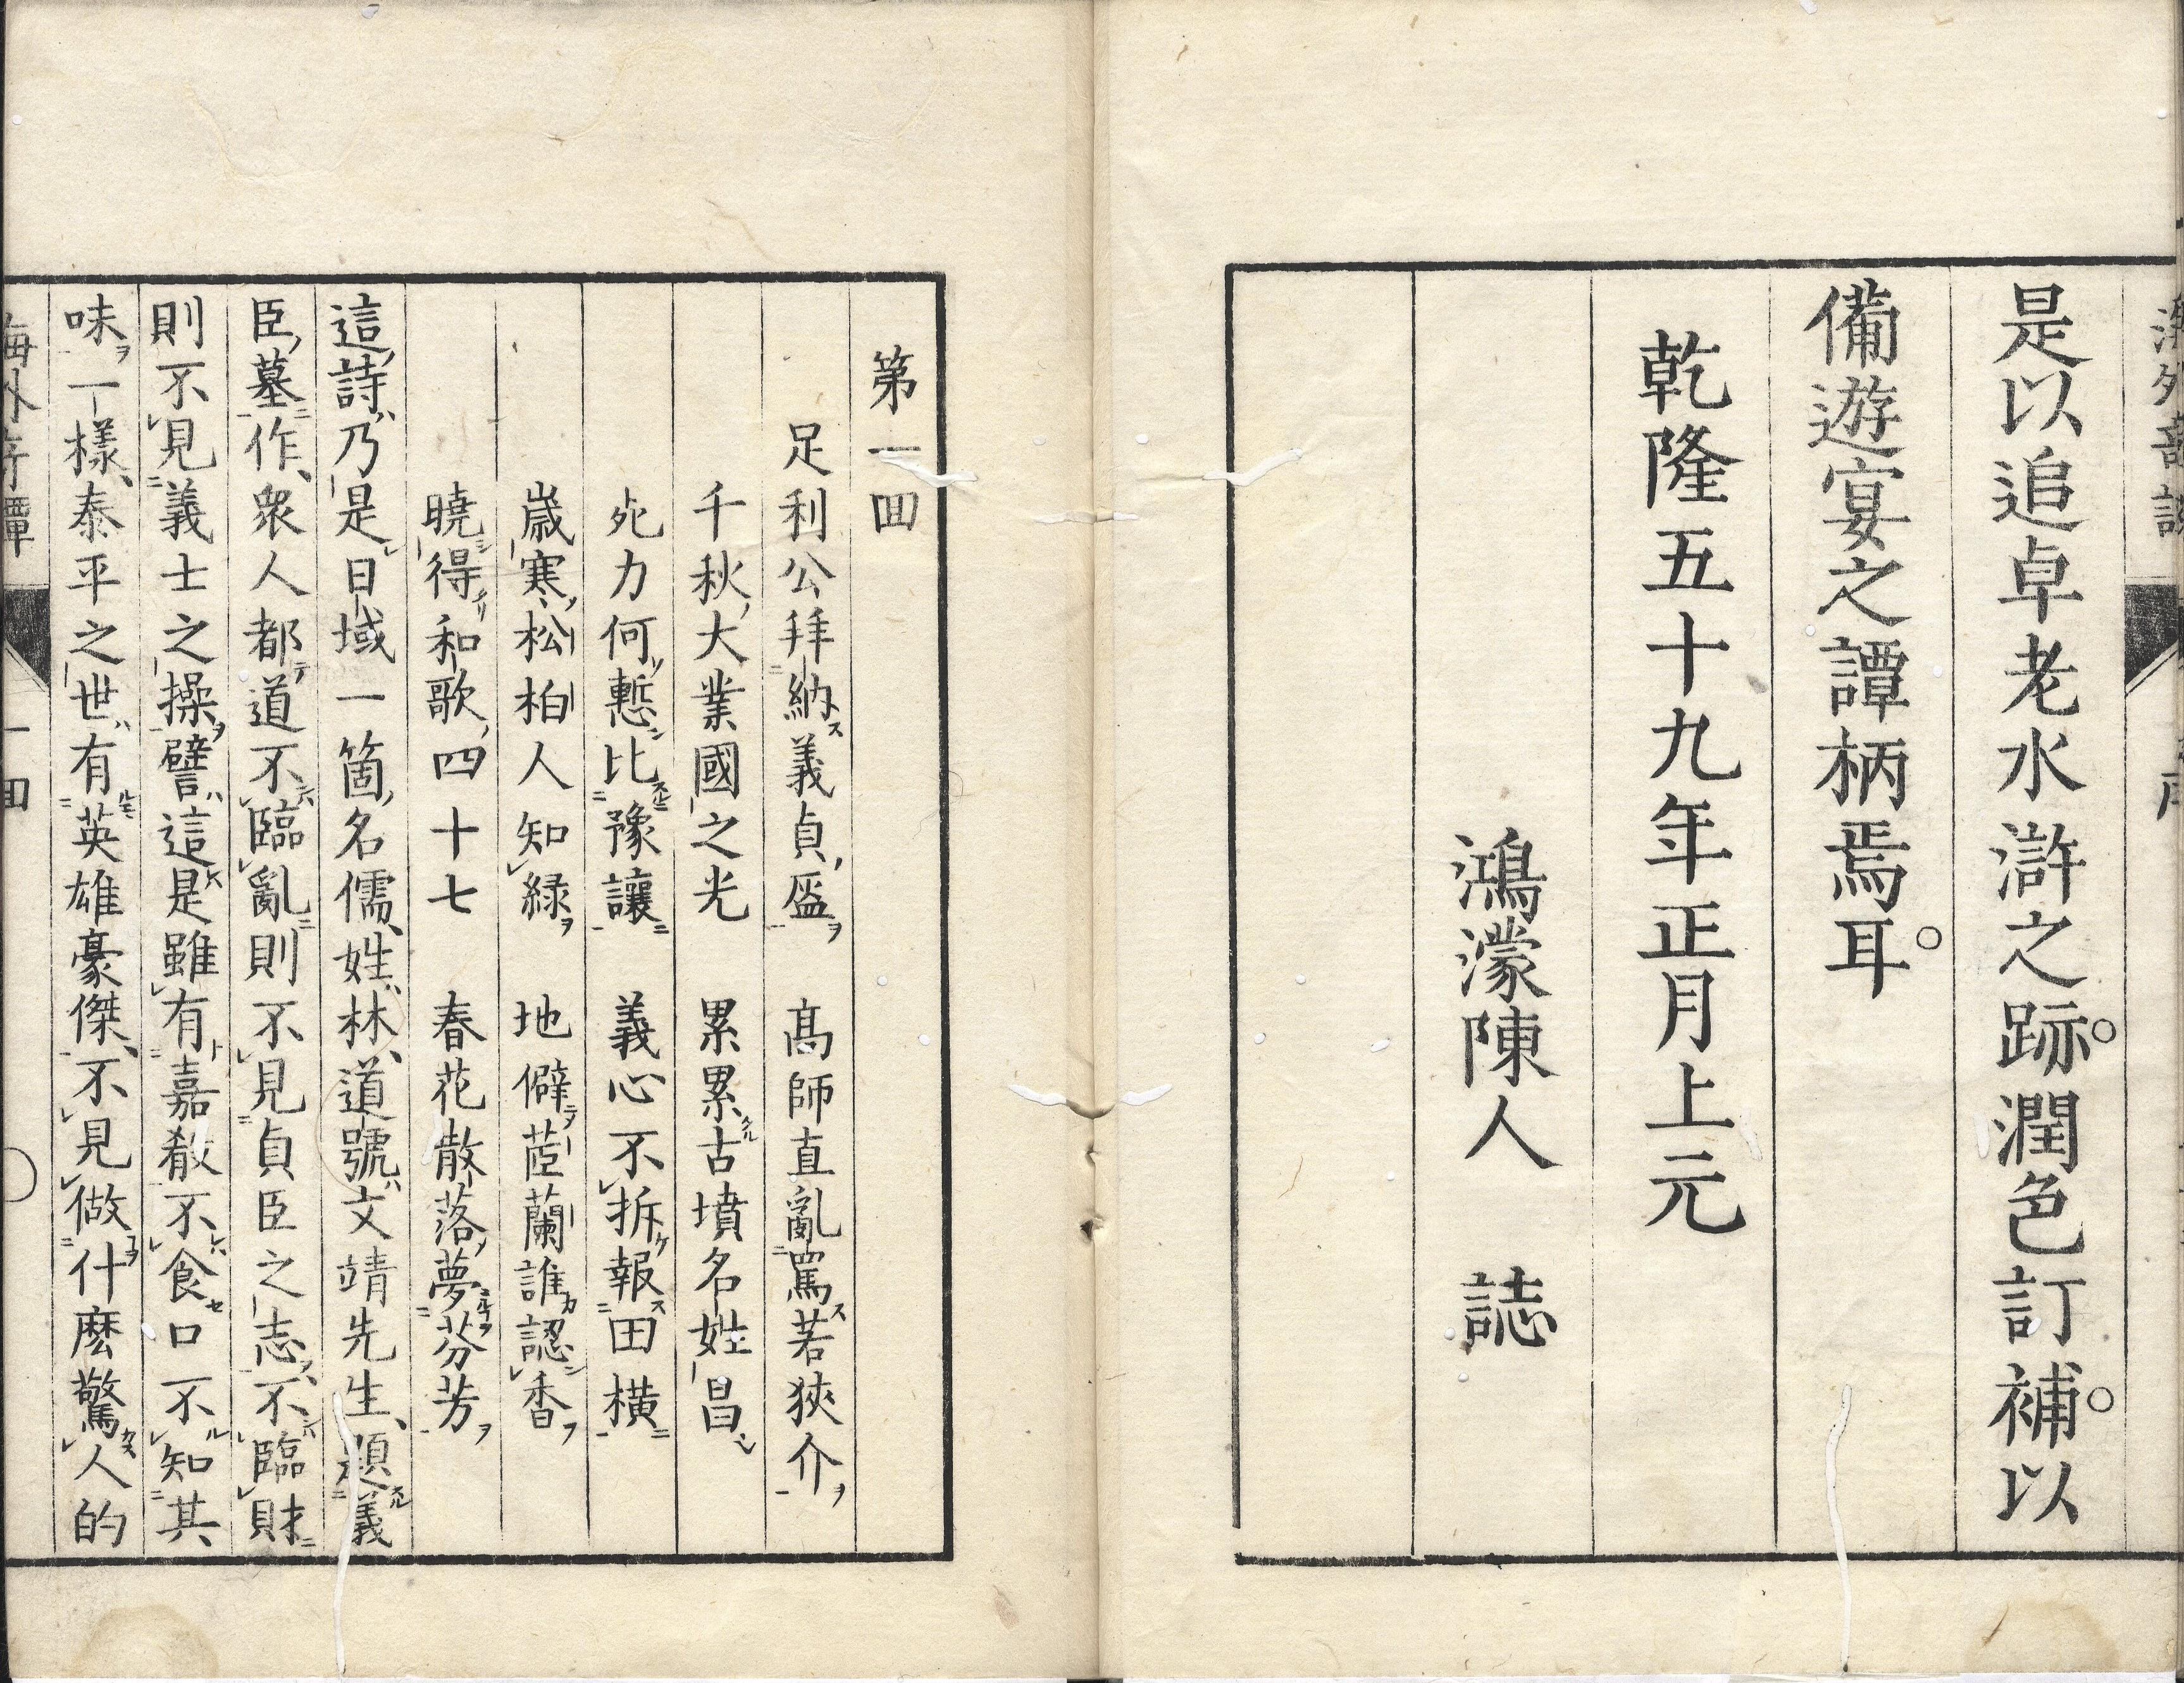 是以追卓老水滸之跡。潤色訂補。以
備遊宴之譚柄焉耳。
乾隆五十九年正月上元
鴻濛陳人　誌
第一回
足利公拜納義貞盔　高師直亂罵若狹介
千秋大業國之光　累累古墳名姓昌
死力何慙比豫讓　義心不拆報田橫
歳寒松柏人知緑　地僻茝蘭誰認香
曉得和歌四十七　春花散落夢芬芳
這詩乃是日域一箇名儒姓林道號文靖先生題義
臣墓作衆人都道不臨亂則不見貞臣之志不臨財
則不見義士之操譬這是雖有嘉殽不食口不知其
味一樣泰平之世有英雄豪傑不見做什麽驚人的
海外奇譚　一回